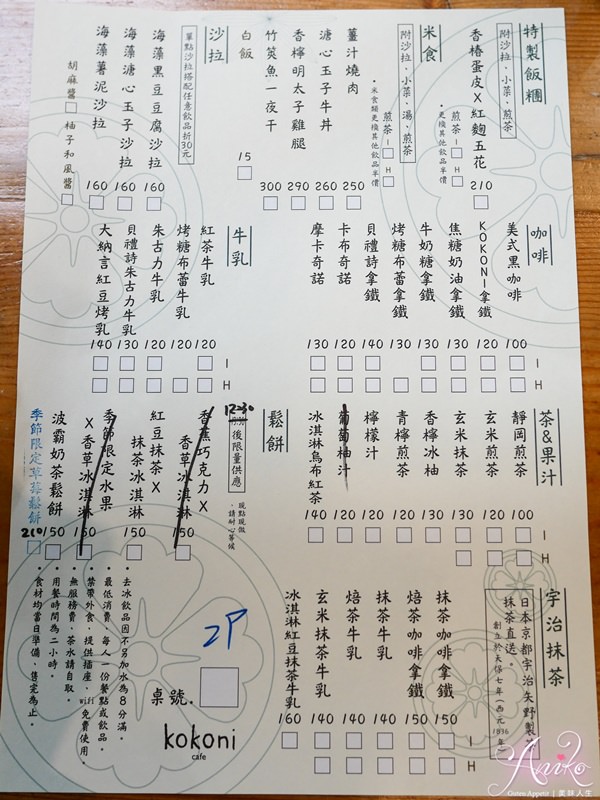 特製飯糰
附沙拉.小菜.煎茶
香椿蛋皮X紅麴五花 210
煎茶-□I □H
.更換其他飲品半價
米食
附沙拉.小菜.湯.煎茶
煎茶-□I □H
.米食類更換其他飲品半價
薑汁燒肉 250
溏心玉子牛丼 260
香檸明太子雞腿 290
竹筴魚一夜干 300
白飯 15
沙拉
單點沙拉搭配任意飲品折30元
海藻黑豆豆腐沙拉 160
海藻溏心玉子沙拉 160
海藻薯泥沙拉 160
胡麻醬□ 柚子和風醬□
咖啡
I
H
美式黑咖啡 100
KOKONI拿鐵 120
焦糖奶油拿鐵 130
牛奶糖拿鐵 130
烤糖布蕾拿鐵 130
貝禮詩拿鐵 140
卡布奇諾 120
摩卡奇諾 130
牛乳
I
H
紅茶牛乳 120
烤糖布蕾牛乳 120
朱古力牛乳 120
貝禮詩朱古力牛乳 130
大納言紅豆烤乳 140
茶&果汁
I
H
靜岡煎茶 100
玄米煎茶 120
玄米抹茶 130
香檸冰柚 130
青檸煎茶 120
檸檬汁 120
葡萄柚汁 120
冰淇淋烏布紅茶 140
鬆餅
12:30
後限量供應
現點現做
.請耐心等候
香蕉巧克力X
香草冰淇淋 150
紅豆抹茶X
抹茶冰淇淋 150
季節限定水果
X香草冰淇淋 150
波霸奶茶鬆餅 150
季節限定草莓鬆餅 210
宇治抹茶
日本京都宇治矢野製
抹茶直送。
創立於天保七年(西元1836年)
I
H
抹茶咖啡拿鐵 150
焙茶咖啡拿鐵 150
抹茶牛乳 140
焙茶牛乳 140
玄米抹茶牛乳 140
冰淇淋紅豆抹茶牛乳 160
2P
桌號.
kokoni
cafe
.去冰飲品因不另加水為8分滿。
.最低消費.每人一份餐點或飲品。
.禁帶外食.提供插座、wifi免費使用。
.無服務費.茶水請自取。
.用餐時間為二小時。
.食材均當日準備、售完為止。
Aniko
Outre Appetit | 美味人生